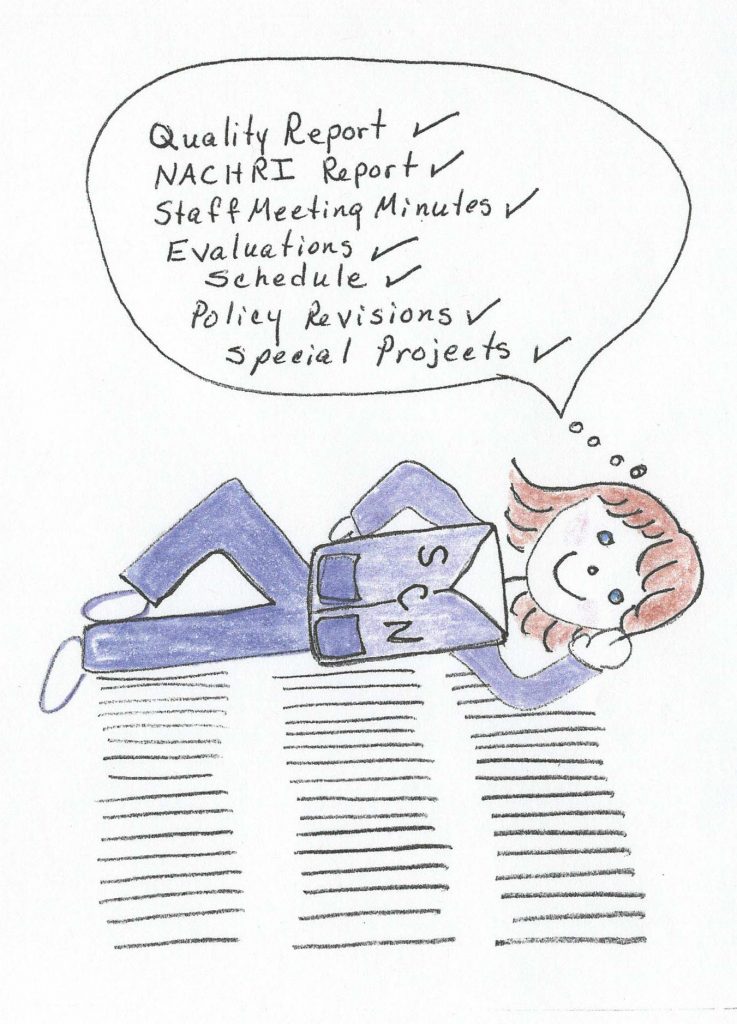 Quality Report ✓
NACHRI Report ✓
Staff Meeting Minutes ✓
Evaluations ✓
Schedule ✓
Policy Revisions ✓
Special Projects ✓
SCN